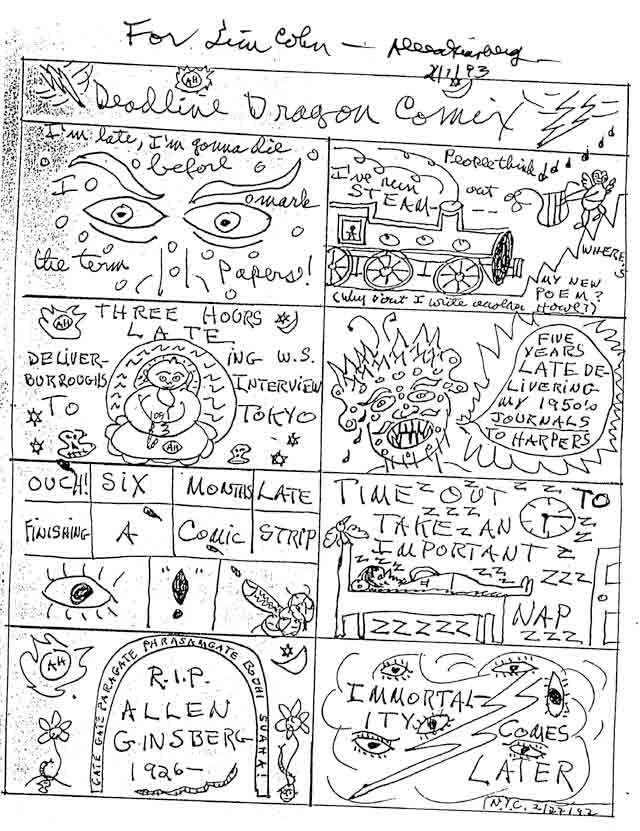 For Jim Cohn — Allen Ginsberg
2/1/93
AH
Deadline Dragon Comix
I'm late, I'm gonna die
before
I mark
the term papers!
People think
I've run out of
STEAM—
WHERE'S
MY NEW
POEM?
(Why don't I write another Howl?)
AH
THREE HOURS
LATE
DELIVER-ING W.S.
BURROUGHS INTERVIEW
TO TOKYO
AH
FIVE
YEARS
LATE DE-
LIVERING
MY 1950's
JOURNALS
TO HARPERS
OUCH! SIX MONTHS LATE
FINISHING A COMIC STRIP
"!"
TIME OUT TO
TAKE AN
IMPORTANT
NAP
Z Z Z Z Z
AH
GATE GATE PARAGATE PHRASAMGATE BODHI SVAHA!
R.I.P.
ALLEN
GINSBERG
1926—
IMMORTAL-
ITY
COMES
LATER
N.Y.C. 2/27/92